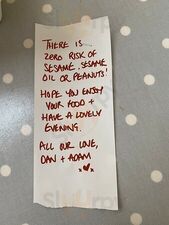 THERE IS
ZERO RISK OF
SESAME, SESAME
OIL OR PEANUTS!
HOPE YOU ENJOY
YOUR FOOD +
HAVE A LOVELY
EVENING.
ALL OUR LOVE,
DAN + ADAM
x♥x